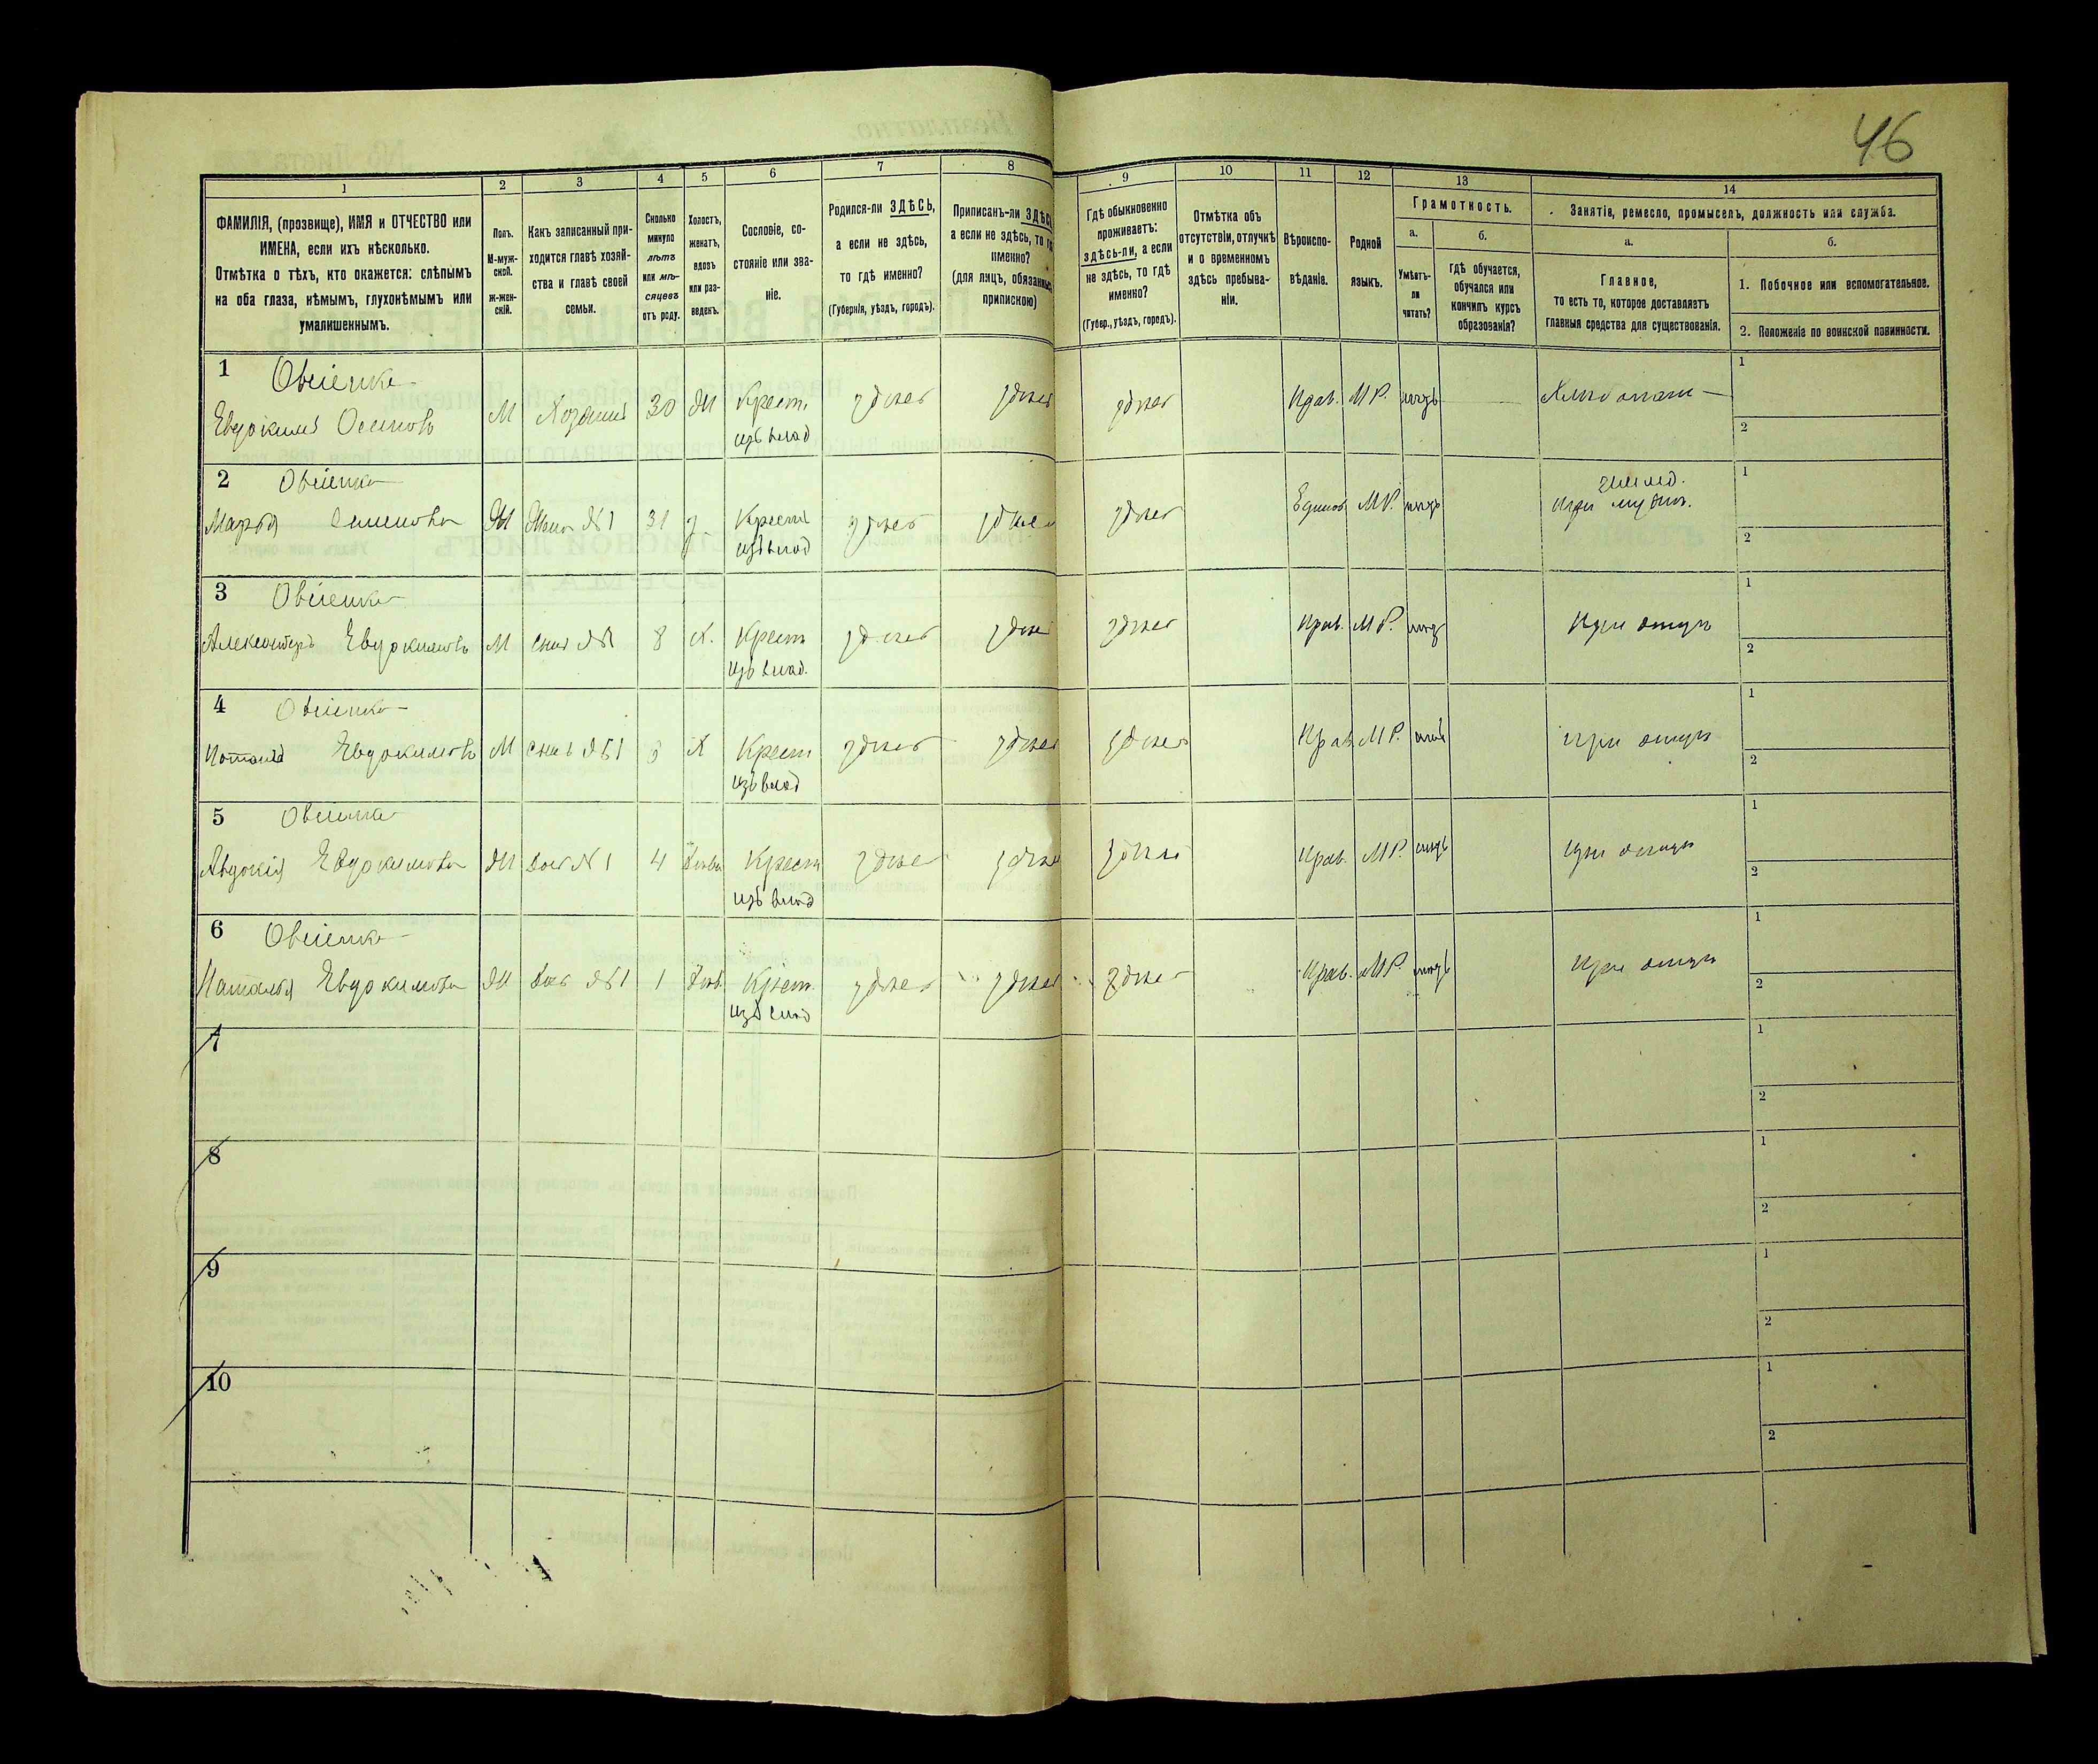 46
1
2
3
4
5
6
7
8
9
10
11
12
13
14
ФАМИЛІЯ, (прозвище), ИМЯ и ОТЧЕСТВО или
ИМЕНА, если ихъ нѣсколько.
Отмѣтка о тѣхъ, кто окажется: слѣпымъ
на оба глаза, нѣмымъ, глухонѣмымъ или
умалишеннымъ.
Полъ.
М-муж-
ской.
Ж-жен-
скій.
Какъ записанный при-
ходится главѣ хозяй-
ства и главѣ своей
семьи.
Сколько
минуло
лѣтъ
или мѣ-
сяцевъ
отъ роду.
Холостъ,
женатъ,
вдовъ
или раз-
веденъ.
Сословіе, со-
стояніе или зва-
ніе.
Родился-ли ЗДѢСЬ,
а если не здѣсь,
то гдѣ именно?
(Губернія, уѣздъ, городъ).
Приписанъ-ли ЗДѢСЬ
а если не здѣсь, то гдѣ
именно?
(для лицъ, обязанныхъ
припискою)
Гдѣ обыкновенно
проживаетъ:
здѣсь-ли, а если
не здѣсь, то гдѣ
именно?
(Губер., уѣздъ, городъ).
Отмѣтка объ
отсутствіи, отлучкѣ
и о временномъ
здѣсь пребыва-
ніи.
Вѣроиспо-
вѣданіе.
Родной
языкъ.
Грамотность.
а.
Умѣетъ-
ли
читать?
б.
гдѣ обучается,
обучался или
кончилъ курсъ
образованія?
Занятіе, ремесло, промыселъ, должность или служба.
а.
Главное,
то есть то, которое доставляетъ
главныя средства для существованія.
б.
1. Побочное или вспомогательное.
2. Положеніе по воинской повинности.
1
Евдокимъ Осиповъ
М Хозяинъ 30 Ж Крест. здѣсь здѣсь здѣсь Прав. М Р. нѣтъ Хлебопаш
изъ влад
1
2
2
Марья Семенова
Ж Жена №1 31 З Крест здѣсь здѣсь здѣсь М Р. нѣтъ
изъ влад
1
2
3
Александръ Евдокимовъ
М Сынъ №1 8 Х. Крест здѣсь здѣсь здѣсь Прав. М Р. нѣтъ При отцѣ
изъ влад.
1
2
4
Евдокимовъ
М Сынъ №1 Х Крест здѣсь здѣсь здѣсь Прав М Р. нѣтъ при отцѣ
изъ влад
1
2
5
Авдокія Евдокимова
Ж Доч №1 4 Крест здѣсь здѣсь здѣсь Прав. М Р. нѣтъ при отцѣ
изъ влад
1
2
6
Наталья Евдокимова
Ж Доч №1 1 Крест. здѣсь здѣсь здѣсь Прав. М Р. нѣтъ При отцѣ
изъ влад
1
2
7
1
2
8
1
2
9
1
2
10
1
2